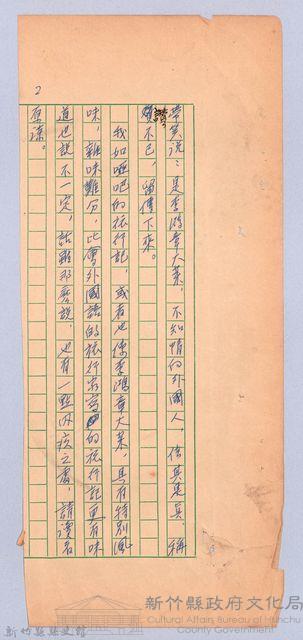 2
帶笑說：是李鴻章大菜，不知情的外國人，信其是真 稱
讚不已，留傳下來。
我如啞吧的旅行記，或者也像李鴻章大菜，具有特別風
味，雜味難分，比會外國語的旅行家寫的旅行記更有味
道也說不一定，話雖那麼說，也有一點內疚之處，請讀者
原諒。
新竹縣政府文化局
Cultural Affairs Bureau of Hsinchu
County Government
新竹縣縣史館